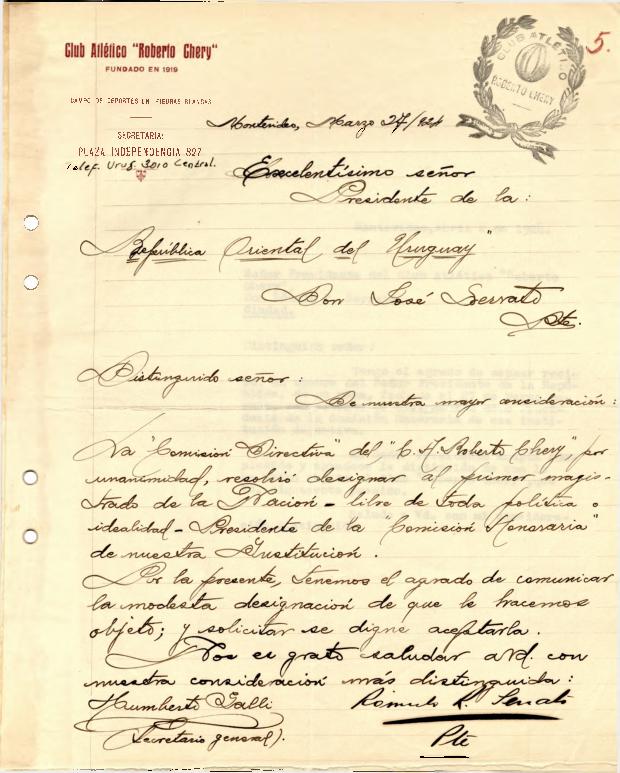 Club Atlético "Roberto Chery"
FUNDADO EN 1919
CLUB ATLÉTICO
ROBERTO CHERY
5.
CAMPO DE DEPORTES EN PIEDRAS BLANCAS
SECRETARIA:
PLAZA INDEPENDENCIA 827
Telef. Urug. 3010 Central.
Montevideo, Marzo 27/924
Excelentísimo señor
Presidente de la:
República Oriental del Uruguay"
Don José Serrato
Pte.
Distinguido señor:
De nuestra mayor consideración:
La "Comisión Directiva" del "C. A. Roberto Chery", por
unanimidad, resolvió designar al primer magis-
trado de la Nación - libre de toda política o
idealidad - Presidente de la "Comisión Honoraria"
de nuestra Institución.
Por la presente, tenemos el agrado de comunicar
la modesta designación de que le hacemos
objeto; y solicitar se digne aceptarla.
Nos es grato saludar a Vd. con
nuestra consideración más distinguida:
Humberto Galli
Rómulo R. Serrato
(Secretario general).
Pte